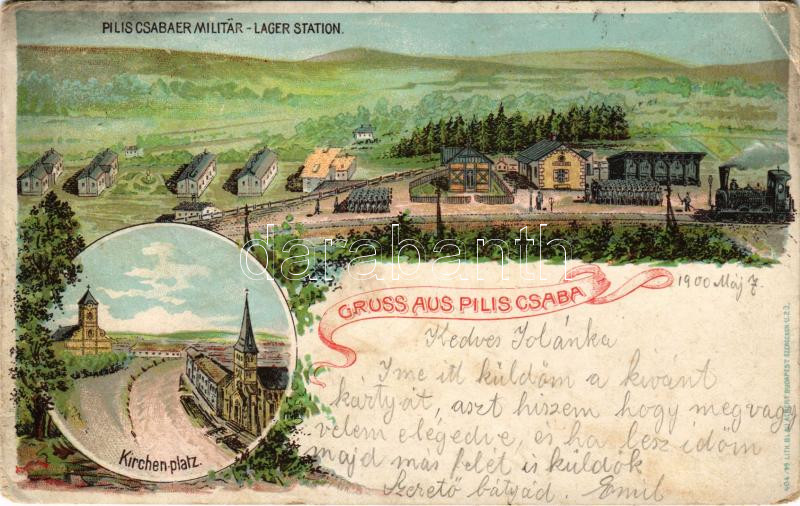 PILIS CSABAER MILITÄR - LAGER STATION.
darabanth
GRUSS AUS PILIS CSABA
1900 Máj 7.
Kedves Jolánka
Ime itt küldöm a kivánt
kártyát, aszt hiszem hogy megvagy
velem elégedve, és ha lesz idöm
majd más felét is küldök
Szerető bátyád. Emil
Kirchen-platz.